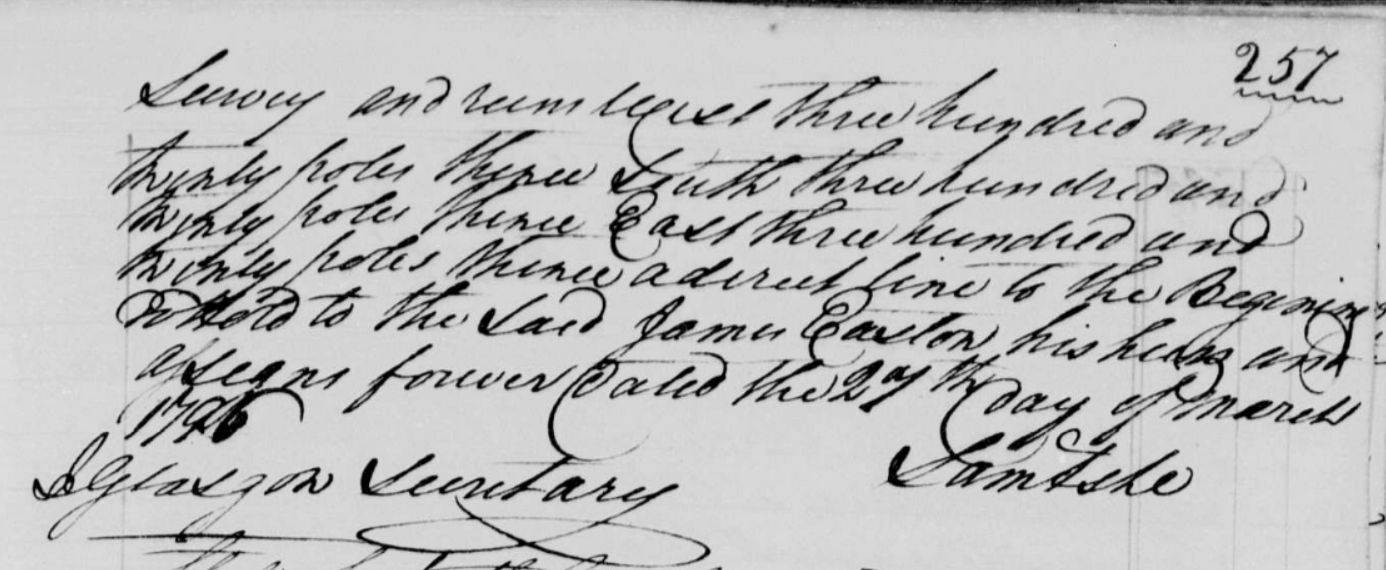 257
Survey and runs West three hundred and
twenty poles thence South three hundred and
twenty poles thence East three hundred and
twenty poles thence a direct line to the Begining
To Hold to the said James Easton his heirs and
assigns forever Dated the 27th day of March
1796
J Glasgow Secretary
Sam Ashe